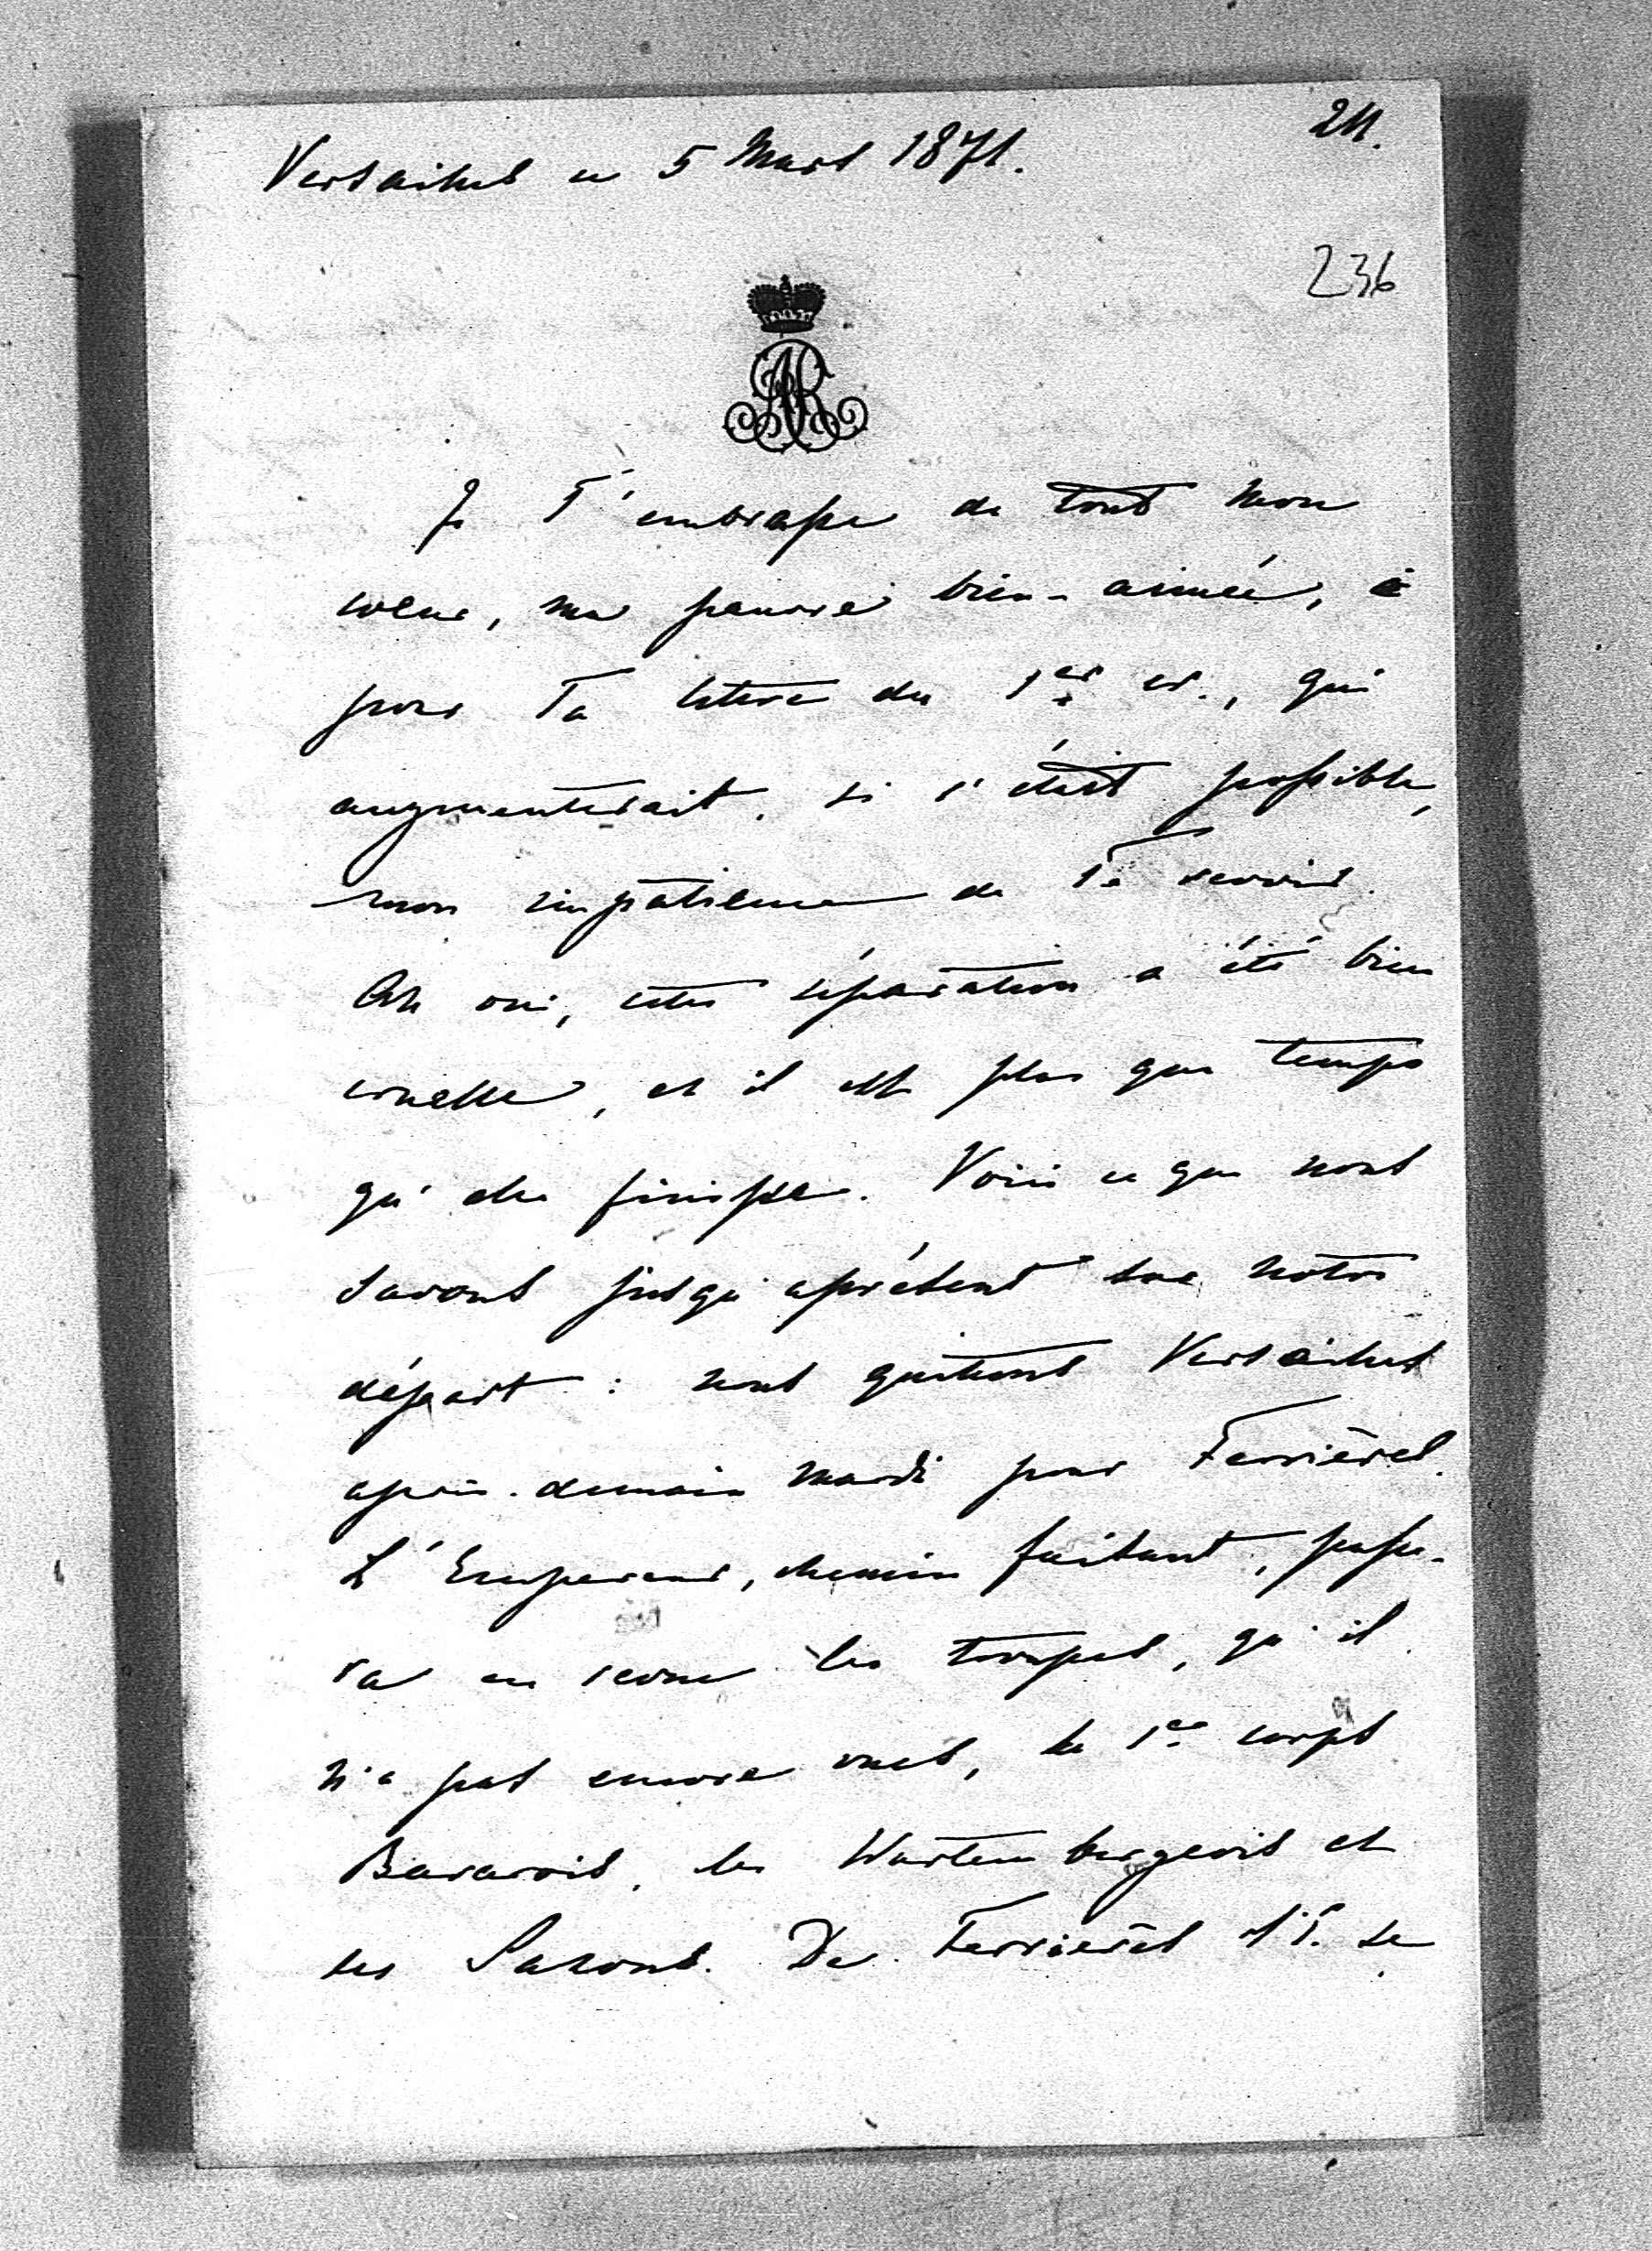 Versailles ce 5 Mars 1871.
211.
236
AR
Je T'embrasse de tout mon
cœur, ma pauvre bien-aimée,
pour Ta lettre du 1er cr., qui
augmenterait, si c'était possible,
mon impatience de Te revoir.
Ah oui, cette séparation a été bien
cruelle, et il est plus que temps
qu'elle finisse. Voici ce que nous
savons jusqu'aprésent sur notre
départ : nous quittons Versailles
après-demain Mardi pour Ferrières.
L'Empereur, chemin faisant, passe-
ra en revue les troupes, qu'il
n'a pas encore vues, le 1er corps
Bavarois, les Wurtembergeois et
les Saxons. De Ferrières le